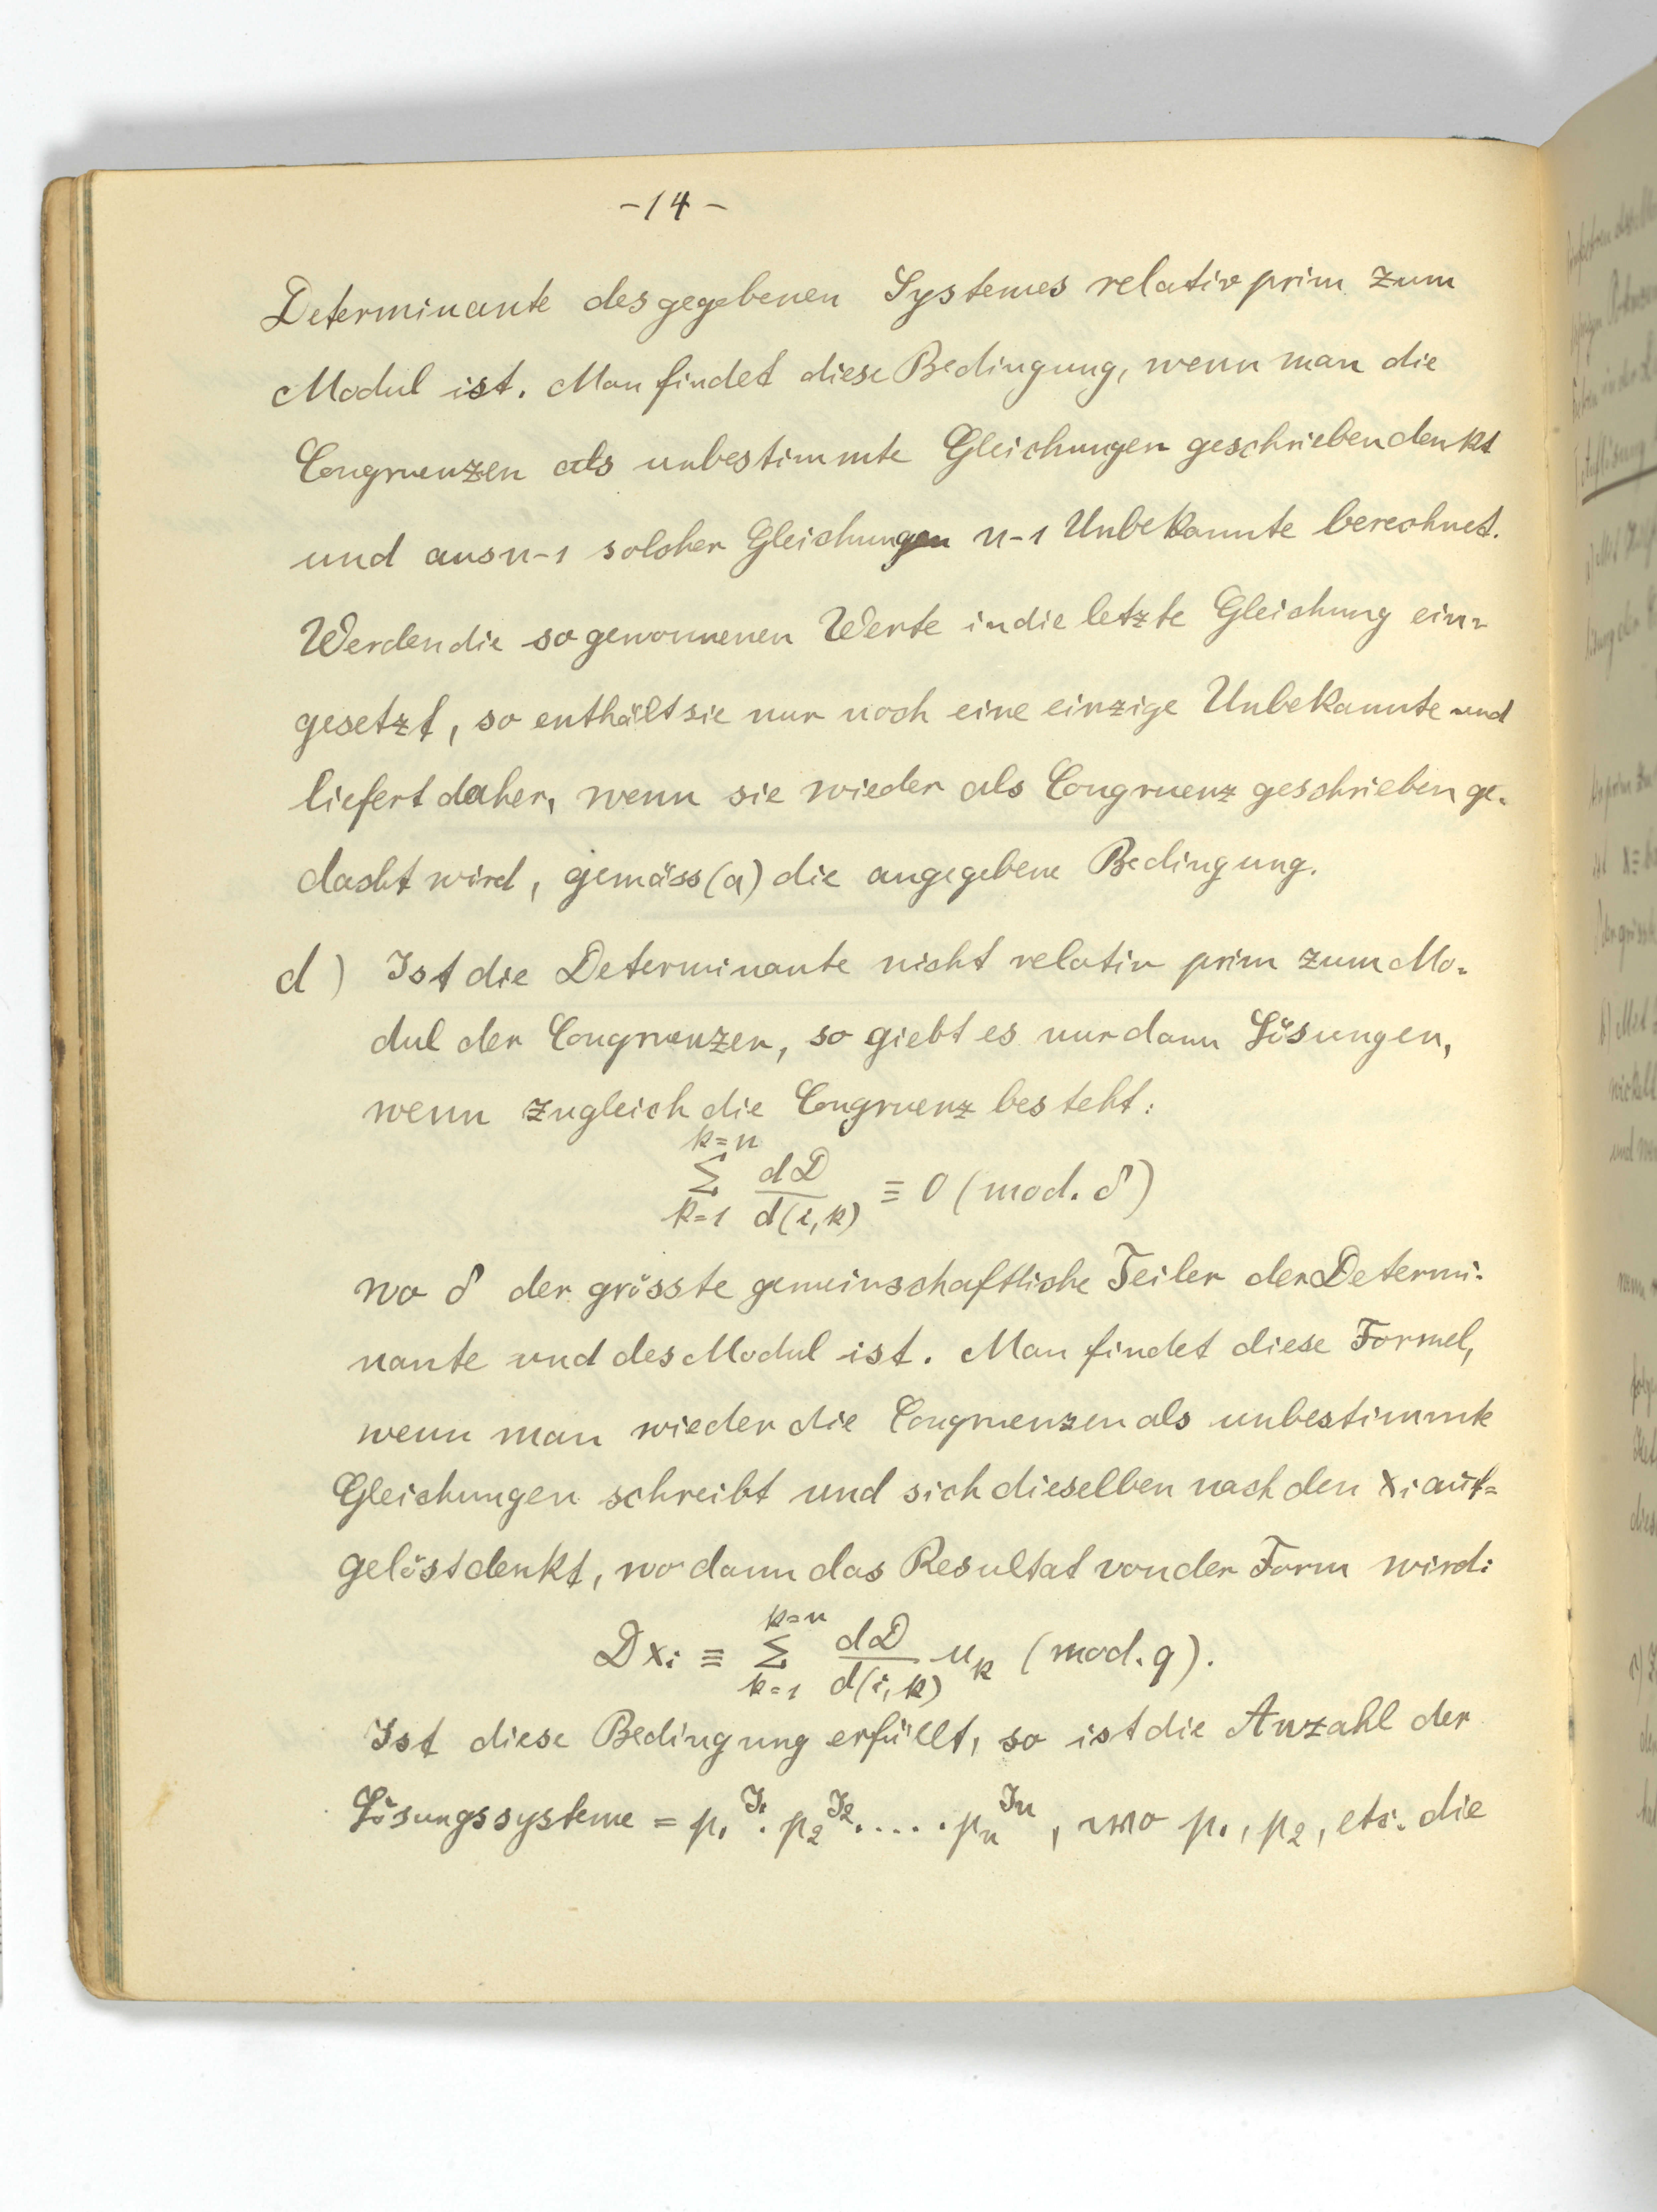 -14-
Determinante des gegebenen Systemes relativ prim zum
Modul ist. Man findet diese Bedingung, wenn man die
Congruenzen als unbestimmte Gleichungen geschrieben denkt
und aus n-1 solcher Gleichungen n-1 Unbekannte berechnet.
Werden die so gewonnenen Werte in die letzte Gleichung ein-
gesetzt, so enthält sie nur noch eine einzige Unbekannte und
liefert daher, wenn sie wieder als Congruenz geschrieben ge-
dacht wird, gemäss (a) die angegebene Bedingung.
d) Ist die Determinante nicht relativ prim zum Mo-
dul der Congruenzen, so giebt es nur dann Lösungen,
wenn zugleich die Congruenz besteht:
k=n
Σ dD/d(i,k) ≡ 0 (mod. δ)
k=1
wo δ der grösste gemeinschaftliche Teiler der Determi-
nante und des Modul ist. Man findet diese Formel,
wenn man wieder die Congruenzen als unbestimmte
Gleichungen schreibt und sich dieselben nach den xᵢ auf-
gelöst denkt, wo dann das Resultat von der Form wird:
k=n
Dxᵢ ≡ Σ dD/d(i,k) uₖ (mod. q).
k=1
Ist diese Bedingung erfüllt, so ist die Anzahl der
Lösungssysteme = p₁^J₁ · p₂^J₂ ..... pₙ^Jₙ, wo p₁, p₂, etc. die